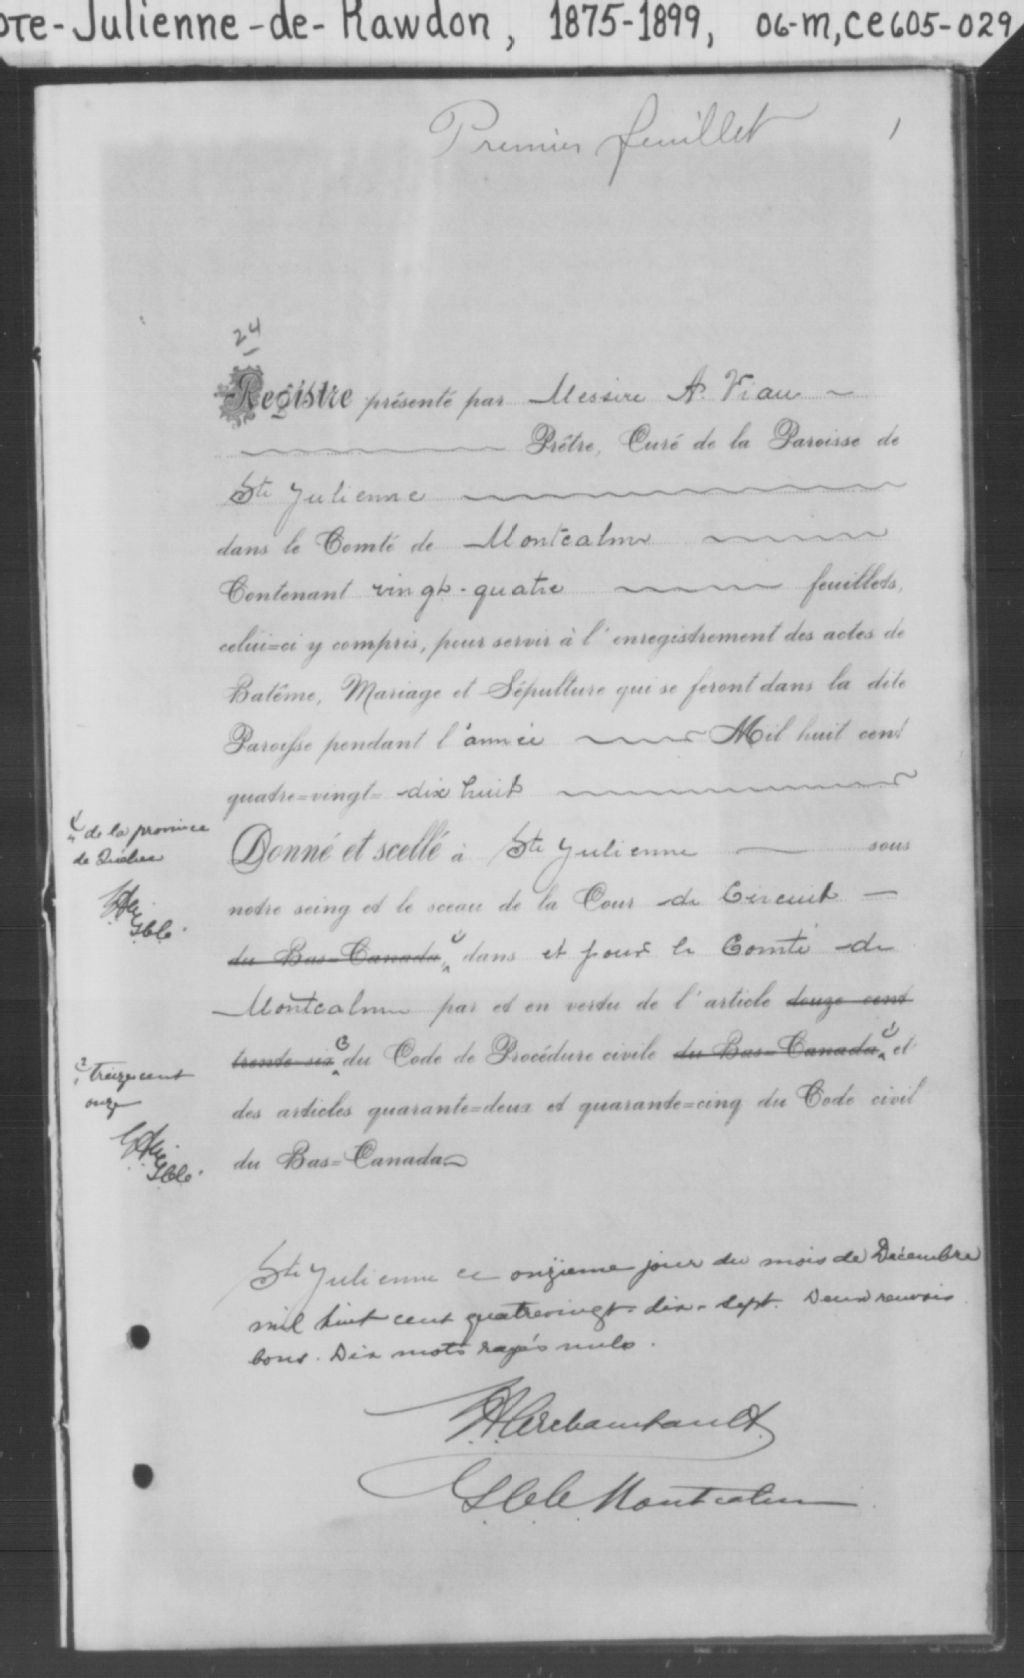 OTE-Julienne-de-Rawdon, 1875-1899, 06-M,CE605-029
Premier feuillet
1
24
Registre présenté par Messire A. Viau
Prêtre, Curé de la Paroisse de
Ste Julienne
dans le Comté de Montcalm
Contenant vingt-quatre feuillets,
celui=ci y compris, pour servir à l'enregistrement des actes de
Batême, Mariage et Sépulture qui se feront dans la dite
Paroisse pendant l'année Mil huit cent
quatre=vingt=dix huit
de la province
de Québec
Donné et scellé à Ste Julienne sous
notre seing et le sceau de la Cour de Circuit
du Bas=Canada, dans et pour le Comté de
Montcalm par et en vertu de l'article douze cent
trente-six du Code de Procédure civile du Bas=Canada, et
treize cent
onze
des articles quarante=deux et quarante=cinq du Code civil
du Bas=Canada
Ste Julienne ce onzième jour du mois de Décembre
mil huit cent quatrevingt-dix-sept. Deux renvois
bons. Dix mots rayés nuls.
Archambault
Montcalm